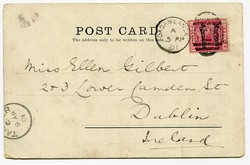 POST CARD
The address only to be written on this
Miss Ellen Gilbert
2 & 3 Lower Camden St
Dublin
Ireland